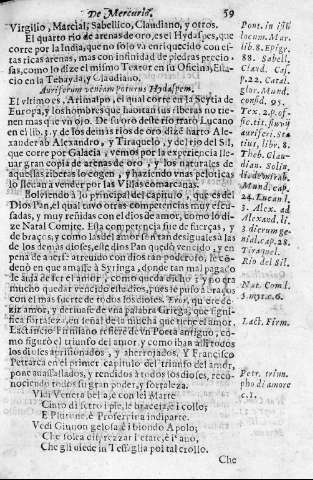 De Mercurio. 59
Virgilio, Marcial, Sabellico, Claudiano, y otros.
El quarto rio de arenas de oro, es el Hydaspes, que
corre por la India, que no solo va enriquecido con es-
tas ricas arenas, mas con infinidad de piedras precio-
sas, como lo dize el mismo Textor en su Oficina, Esta-
cio en la Tebayda, y Claudiano.
Auriferum veniam poturus Hydaspem.
El vltimo es, Arimaspo, el qual corre en la Seytia de
Europa, y los hombres que habitan sus riberas no tie-
nen mas que vn ojo. De su oro deste rio trato Lucano
en el lib. 3. y de los demas rios de oro dize harto Ale-
xander ab Alexandro, y Tiraquelo, y del rio del Sil,
que corre por Galacia, vemos por la experiencia lle-
uar gran copia de arenas de oro, y los naturales de
aquellas riberas lo cogen, y haziendo vnas peloticas
lo lleuan a vender por las Villas comarcanas.
Bolviendo a lo principal del capitulo, que es del
Dios Pan, el qual tuvo otras competencias muy escu-
sadas, y muy reñidas con el dios de amor, como lo di-
ze Natal Comite. Esta competencia fue de fuerças, y
de braços, y como las del amor fuessen tan desiguales a las
de los demas dioses, este dios Pan quedò vencido, y en
pena de averse atrevido con dios tan poderoso, le con-
denò en que amasse à Syringa, donde tan mal pagado
le avia de ser el amor, como queda dicho; y no era
mucho quedar vencido este dios, pues se puso à braços
con el mas fuerte de todos los dioses. Eros, quiere de-
zir amor, y derivase de vna palabra Griega, que signi-
fica fortaleza, en señal de la mucha que tiene el amor.
Lactancio Firmiano refiere de vn Poeta antiguo, co-
mo figurò el triunfo del amor, y como iban alli todos
los dioses aprisionados, y aherrojados. Y Francisco
Petrarca en el primer capitulo del triunfo del amor,
pone avassallados, y rendidos à todos los dioses, reco-
nociendo todos su gran poder, y fortaleza.
Vidi Venere bella, è con lei Marte
Cinto di ferro i pie, le braccia, è i collo;
E Plutone, è Proserpina indiparte.
Vedi Giunon gelosa, è i biondo Apolo;
Che solea
Che gli uiede in Tessaglia poi tal crollo.
Che
Pont. in
locum. Mar.
lib. 8. Epigr.
88. Sabell.
Claud. Cass.
p. 22. Catal.
glor. Mund.
consid. 93.
Tex. 2. p. of-
fic. tit. fluvij
auriferi. Sta-
tius, libr. 8.
Theb. Clau-
dian.
Mund. cap.
24. Lucan l.
3. Alex. ab
Alexand. li.
3 dierum ge-
nial. cap. 28.
Tiraquel.
Rio del Sil.
Nat. Com l.
Lact. Firm.
Petr. trium-
pho di amore
c. 1.